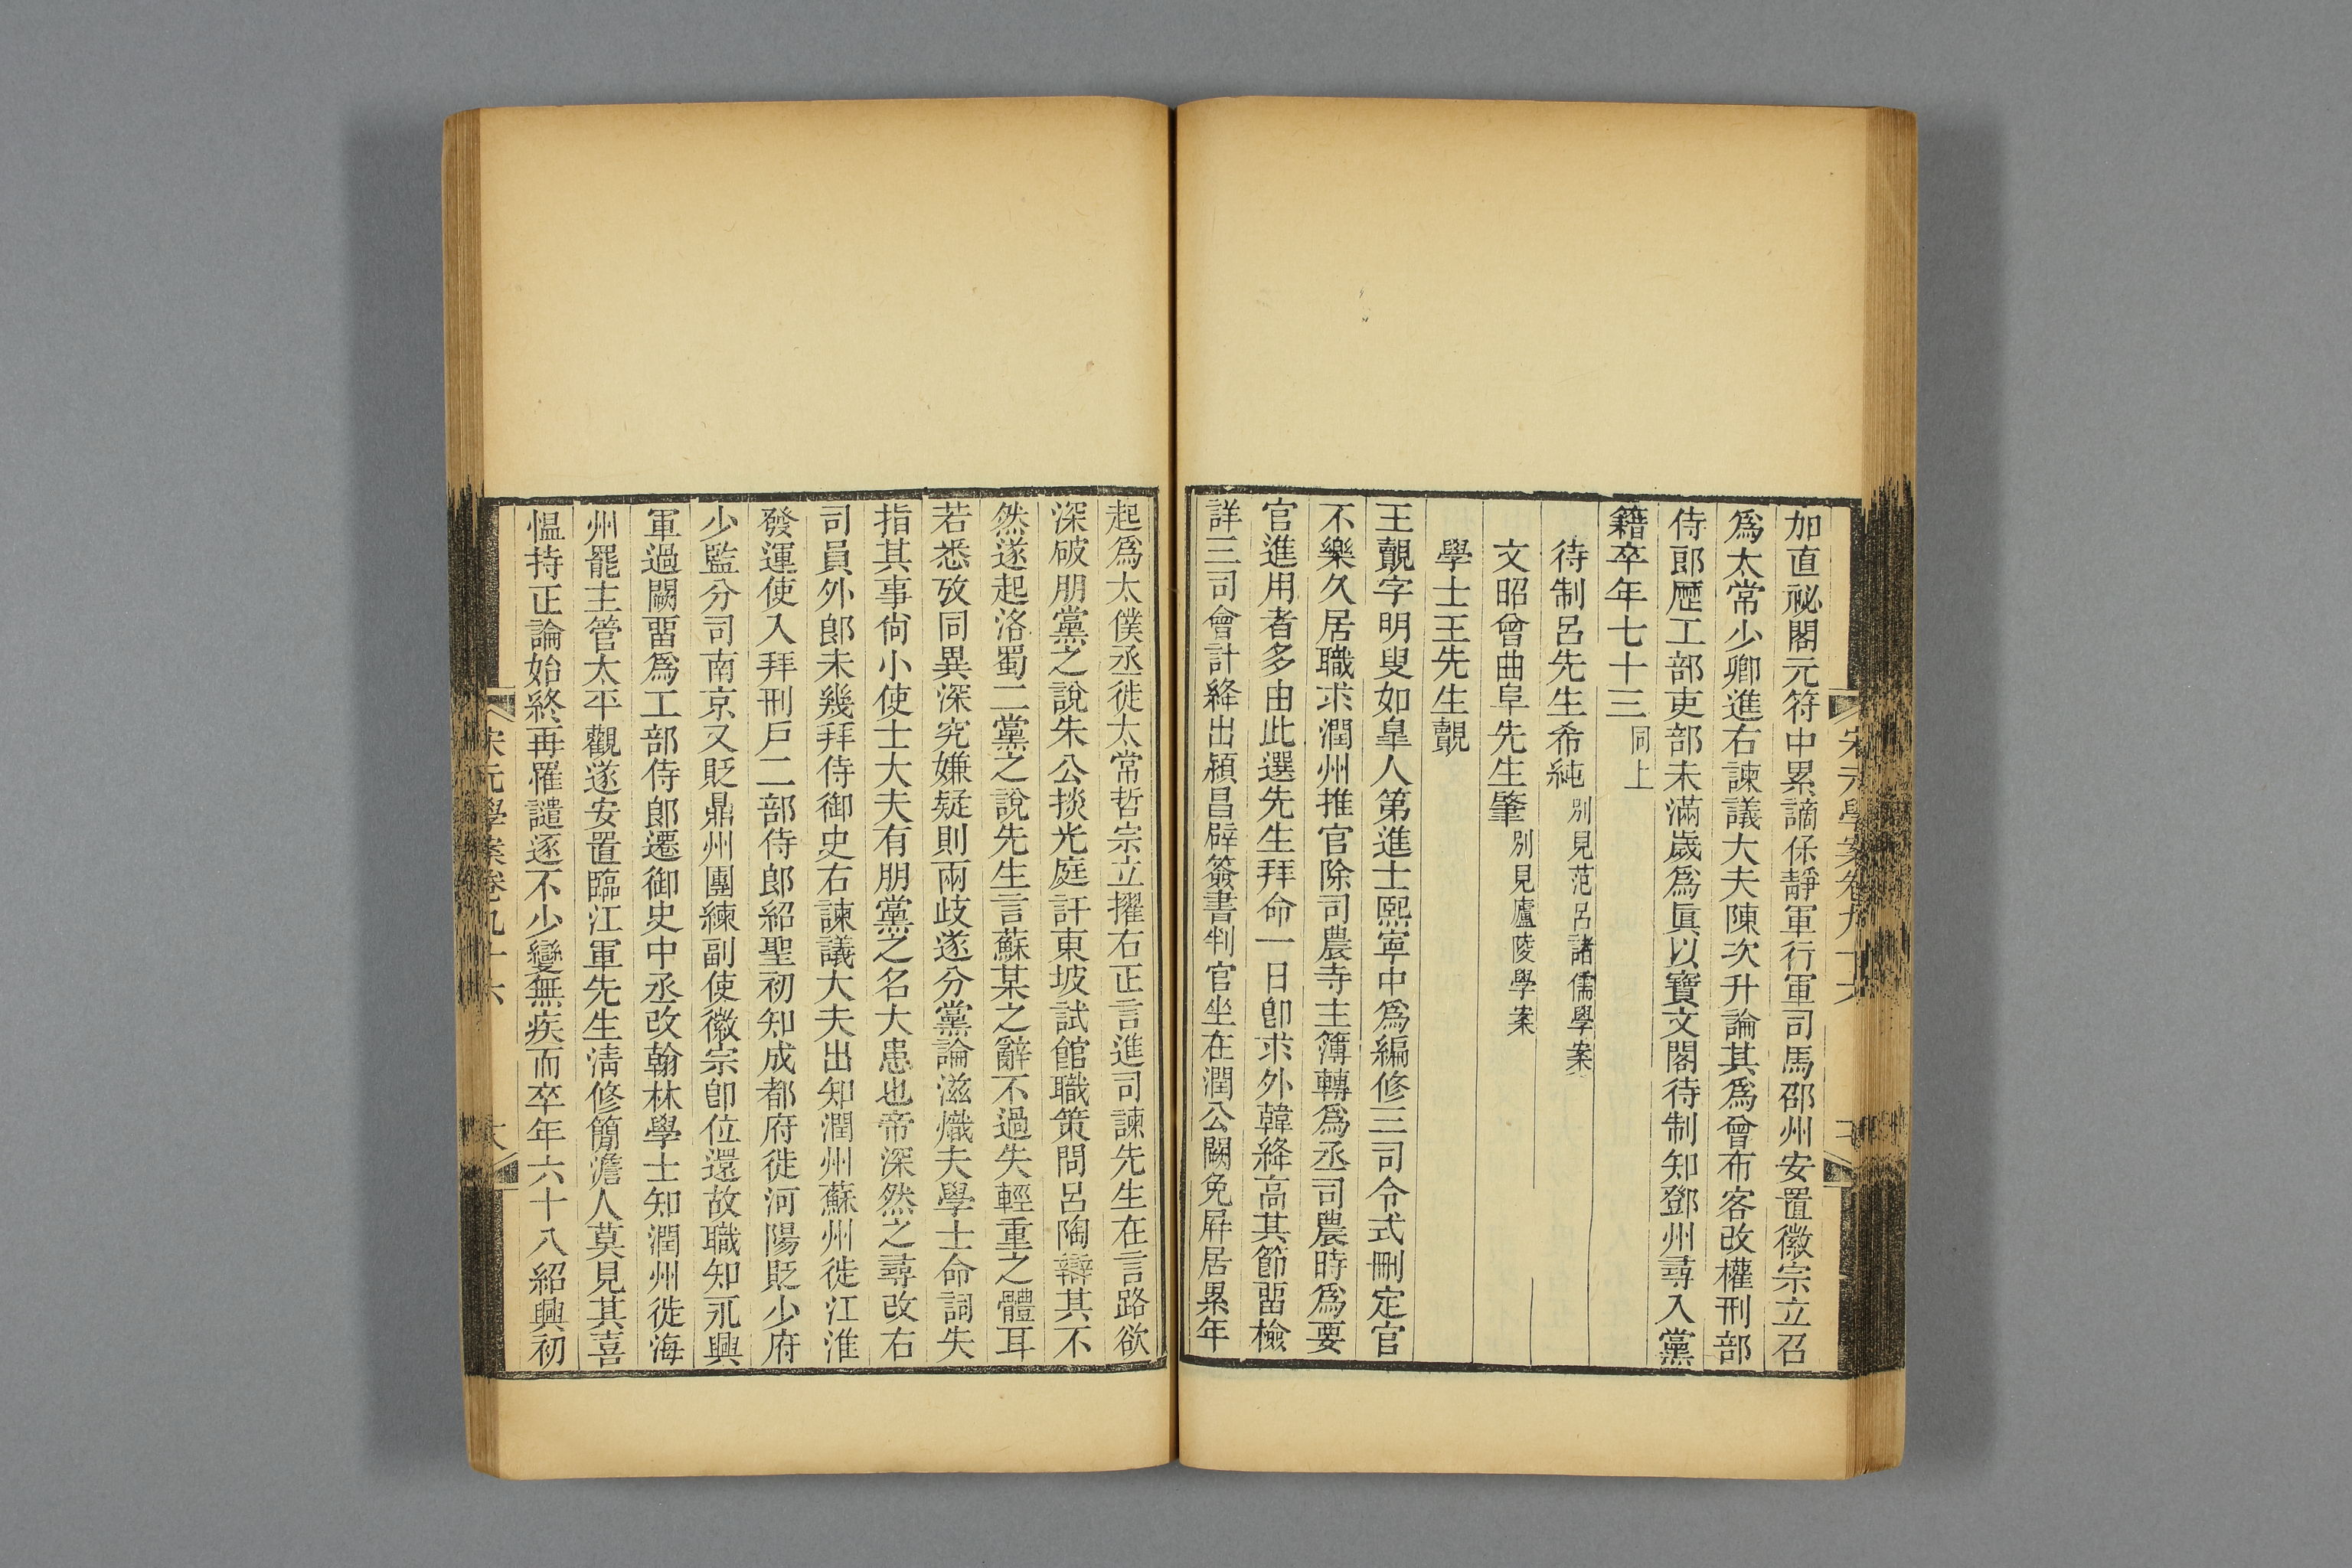 加直祕閣元符中累謫保靜軍行軍司馬邵州安置徽宗立召
爲太常少卿進右諫議大夫陳次升論其爲曾布客改權刑部
侍郎歷工部吏部未滿歲爲眞以寶文閣待制知鄧州尋入黨
籍卒年七十三同上
待制呂先生希純別見范呂諸儒學案
文昭曾曲阜先生肇別見廬陵學案
學士王先生覿
王覿字明叟如臯人第進士熙寧中爲編修三司令式刪定官
不樂久居職求潤州推官除司農寺主簿轉爲丞司農時爲要
官進用者多由此選先生拜命一日卽求外韓絳高其節畱檢
詳三司會計絳出潁昌辟簽書判官坐在潤公闕免屛居累年
起爲太僕丞徙太常哲宗立擢右正言進司諫先生在言路欲
深破朋黨之說朱公掞光庭訐東坡試館職策問呂陶辯其不
然遂起洛蜀二黨之說先生言蘇某之辭不過失輕重之體耳
若悉攷同異深究嫌疑則兩歧遂分黨論滋熾夫學士命詞失
指其事尙小使士大夫有朋黨之名大患也帝深然之尋改右
司員外郎未幾拜侍御史右諫議大夫出知潤州蘇州徙江淮
發運使入拜刑戶二部侍郎紹聖初知成都府徙河陽貶少府
少監分司南京又貶鼎州團練副使徽宗卽位還故職知永興
軍過闕畱爲工部侍郎遷御史中丞改翰林學士知潤州徙海
州罷主管太平觀遂安置臨江軍先生淸修簡澹人莫見其喜
慍持正論始終再罹譴逐不少變無疾而卒年六十八紹興初
宋元學案卷九十六